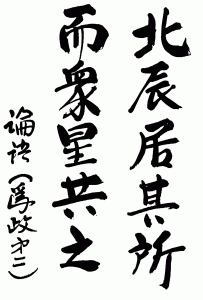 北辰居其所
而衆星共之
論語（爲政第二）